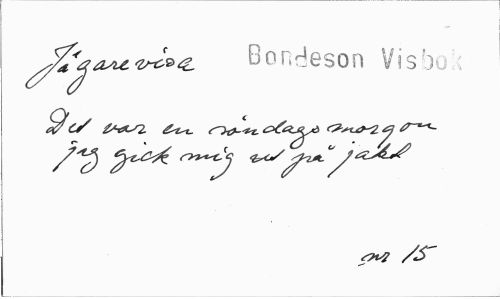 Jägarevisa Bondeson Visbok
Det var en söndagsmorgon
jag gick mig ut på jakt
nr 15